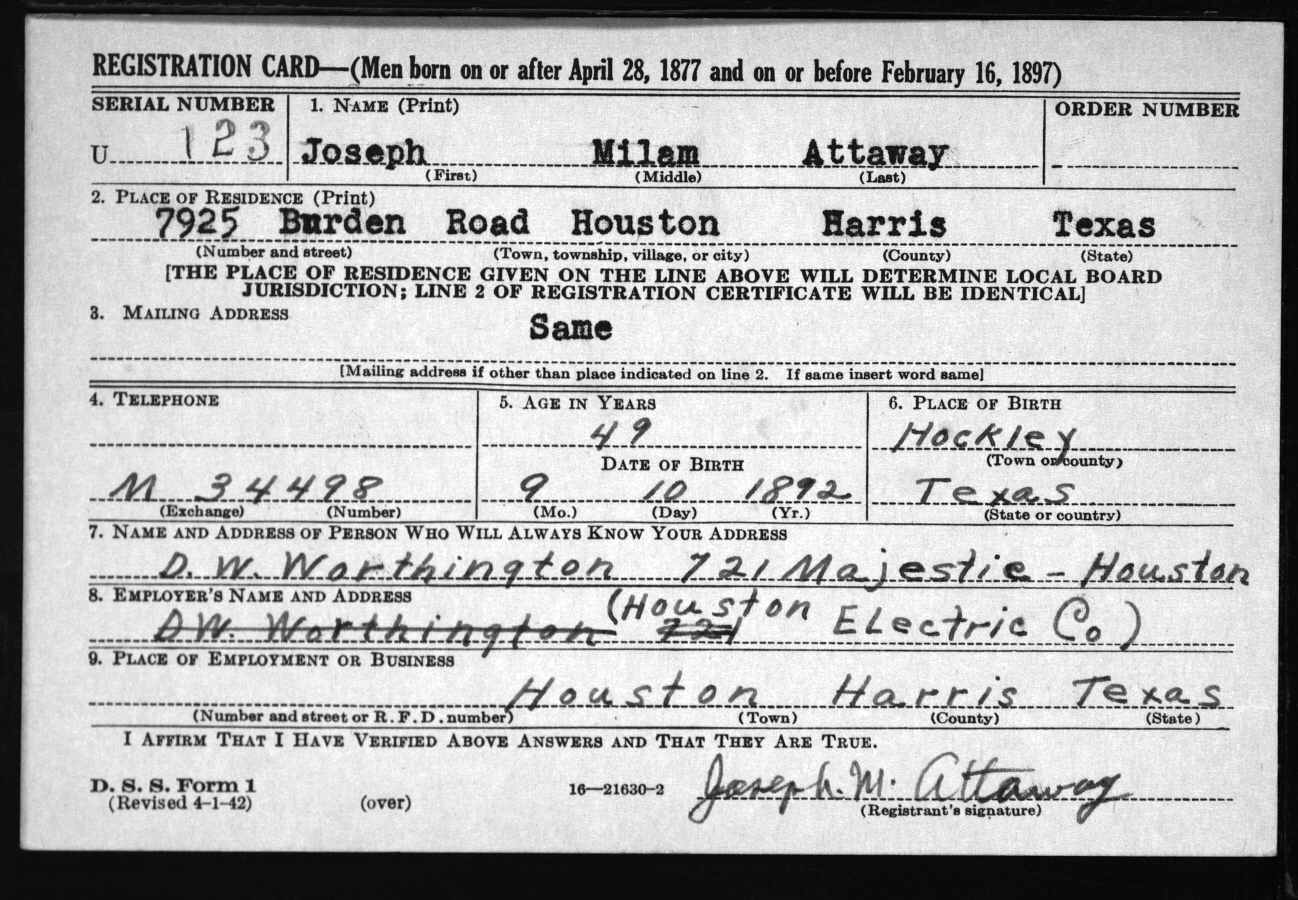 REGISTRATION CARD—(Men born on or after April 28, 1877 and on or before February 16, 1897)
SERIAL NUMBER 1. NAME (Print) ORDER NUMBER
U 123 Joseph Milam Attaway
(First) (Middle) (Last)
2. PLACE OF RESIDENCE (Print)
7925 Burden Road Houston Harris Texas
(Number and street) (Town, township, village, or city) (County) (State)
[THE PLACE OF RESIDENCE GIVEN ON THE LINE ABOVE WILL DETERMINE LOCAL BOARD
JURISDICTION; LINE 2 OF REGISTRATION CERTIFICATE WILL BE IDENTICAL]
3. MAILING ADDRESS
Same
[Mailing address if other than place indicated on line 2. If same insert word same]
4. TELEPHONE 5. AGE IN YEARS 6. PLACE OF BIRTH
49 Hockley
DATE OF BIRTH (Town or county)
M 34498 9 10 1892 Texas
(Exchange) (Number) (Mo.) (Day) (Yr.) (State or country)
7. NAME AND ADDRESS OF PERSON WHO WILL ALWAYS KNOW YOUR ADDRESS
D. W. Worthington 721 Majestic - Houston
8. EMPLOYER'S NAME AND ADDRESS
D.W. Worthington 721 (Houston Electric Co)
9. PLACE OF EMPLOYMENT OR BUSINESS
Houston Harris Texas
(Number and street or R. F. D. number) (Town) (County) (State)
I AFFIRM THAT I HAVE VERIFIED ABOVE ANSWERS AND THAT THEY ARE TRUE.
D. S. S. Form 1
(Revised 4-1-42) (over) 16—21630-2 Joseph. M. Attaway
(Registrant's signature)